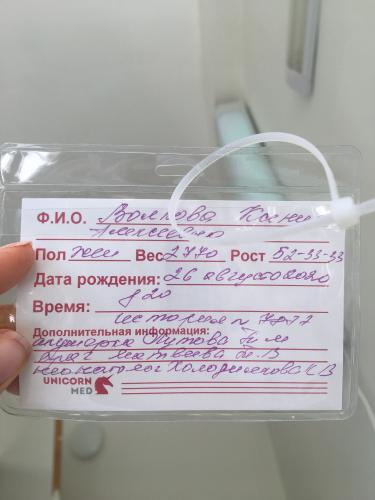 Ф.И.О. Волкова
Алексеевна
Пол жен Вес 2770 Рост 52-33-33
Дата рождения: 26 августа 2020
Время: 8 20
История № 7977
Дополнительная информация:
акушерка
врач Матвеева
неонатолог Холодилова
UNICORN
MED